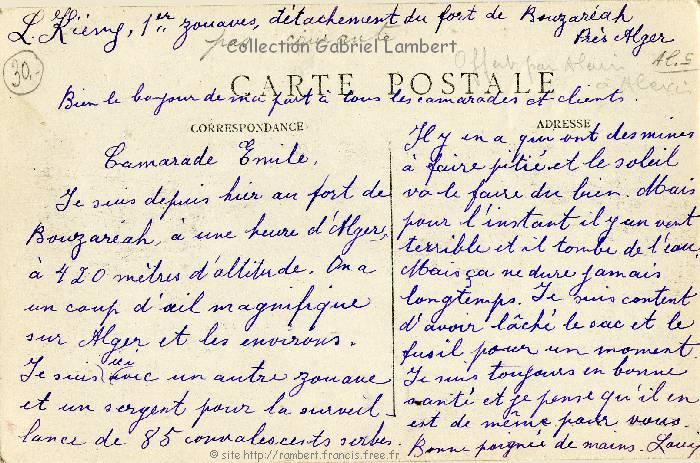 L. Kiény, 1er zouaves, détachement du fort de Bouzaréah
Près Alger
Collection Gabriel Lambert
30.-
Offert par Alain
à Alexis
AL.5
CARTE POSTALE
Bien le bonjour de ma part à tous les camarades et clients.
CORRESPONDANCE
Camarade Emile,
Je suis depuis hier au fort de
Bouzaréah, à une heure d'Alger,
à 420 mètres d'altitude. On a
un coup d'œil magnifique
sur Alger et les environs.
Je suis ici avec un autre zouave
et un sergent pour la surveil-
lance de 85 convalescents serbes.
ADRESSE
Il y en a qui ont des mines
à faire pitié et le soleil
va le faire du bien. Mais
pour l'instant il y a un vent
terrible et il tombe de l'eau.
Mais ça ne dure jamais
longtemps. Je suis content
d'avoir lâché le sac et le
fusil pour un moment
Je suis toujours en bonne
santé et je pense qu'il en
est de même pour vous.
Bonne poignée de mains. Louis
© site http://rambert.francis.free.fr